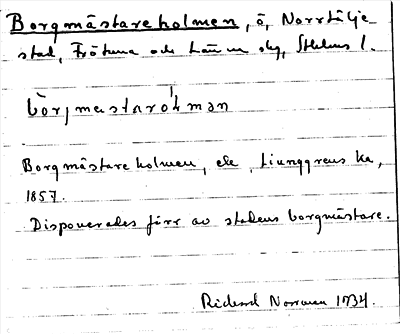 Borgmästareholmen, ö, Norrtälje
stad, Frötuna och Länna skg, Sthlms l.
Borgmästareholmen, ek, Ljunggrens ka,
1857.
Disponerades förr av stadens borgmästare.
Rickard Norrman 1934.